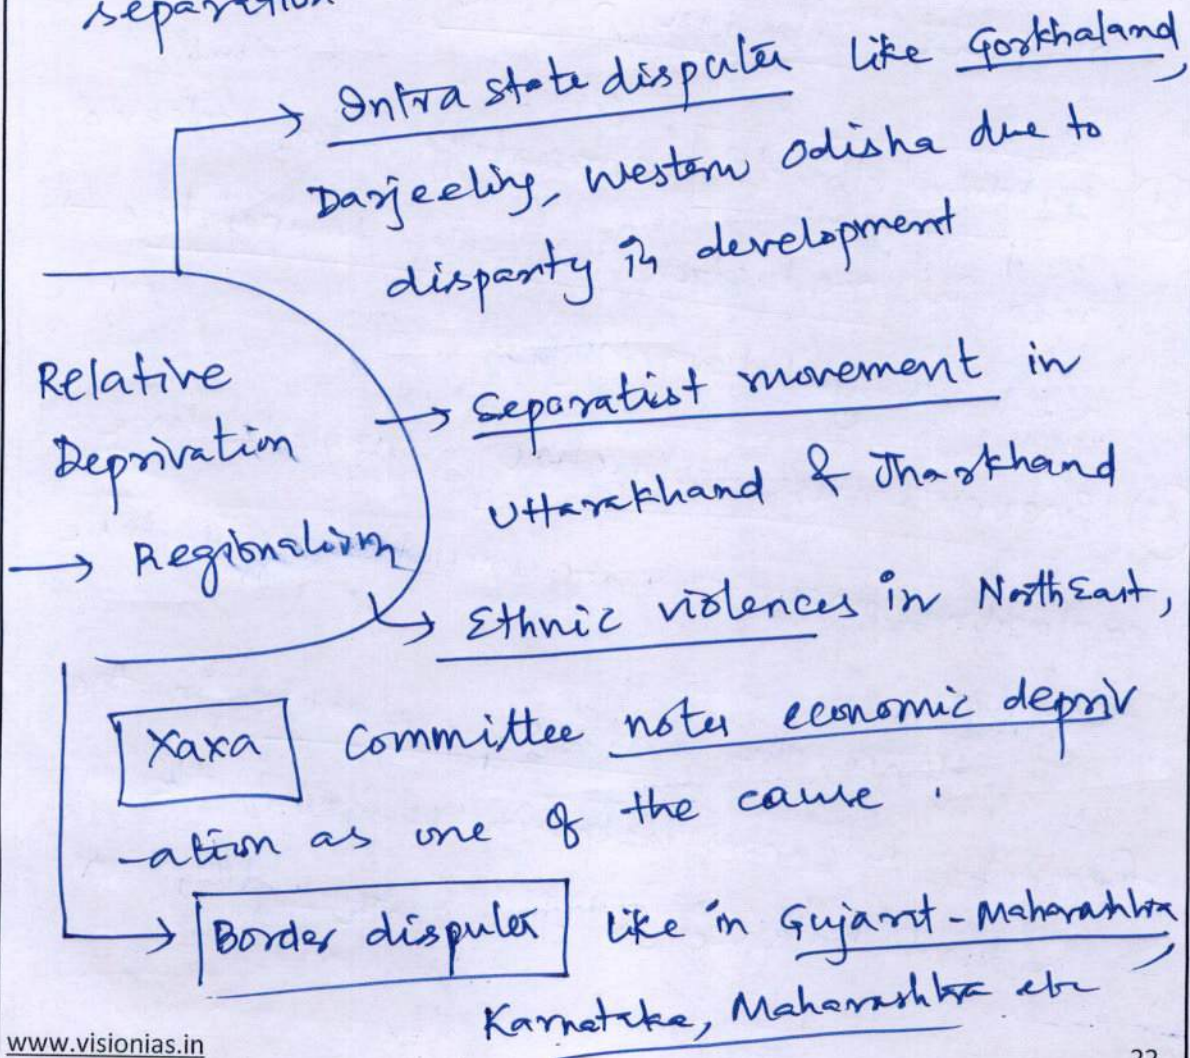 separation
→ Intra state disputes like Gorkhaland,
Darjeeling, Western Odisha due to
disparity in development
Relative
Deprivation
→ Regionalism
→ Separatist movement in
Uttarakhand & Jharkhand
→ Ethnic violences in NorthEast,
Xaxa Committee notes economic depriv
-ation as one of the cause.
→ Border disputes like in Gujarat-Maharashtra,
Karnataka, Maharashtra etc
www.visionias.in